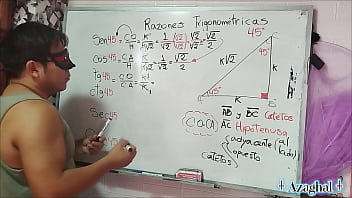 Razones Trigonometricas
Sen45° = CO/H = K/K√2 = 1/√2 (√2)/(√2) = √2/2
Cos45° = CA/H = K/K√2 = 1/√2 = √2/2
tg45° = CO/CA = K/K
ctg45
Sec45
45°
45°
K√2
K
K
AB y BC Catetos
C.O.(A) AC Hipotenusa
Catetos
adyacente (al lado)
opuesto
Azaghal